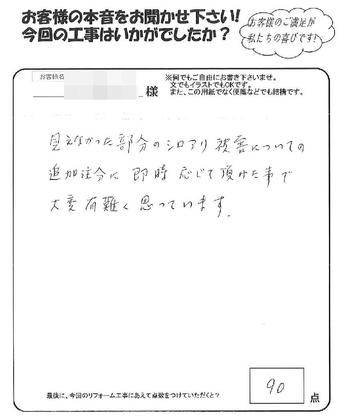 お客様の本音をお聞かせ下さい!
今回の工事はいかがでしたか?
お客様のご満足が
私たちの喜びです!
お客様名
様
※何でもご自由にお書き下さいませ。
文でもイラストでもOKです。
また、この用紙でなく便箋などでも結構です。
見えなかった部分のシロアリ被害についての
追加注分に 即時 応じて頂けた事で
大変有難く思っています。
最後に、今回のリフォーム工事にあえて点数をつけていただくと?
90
点